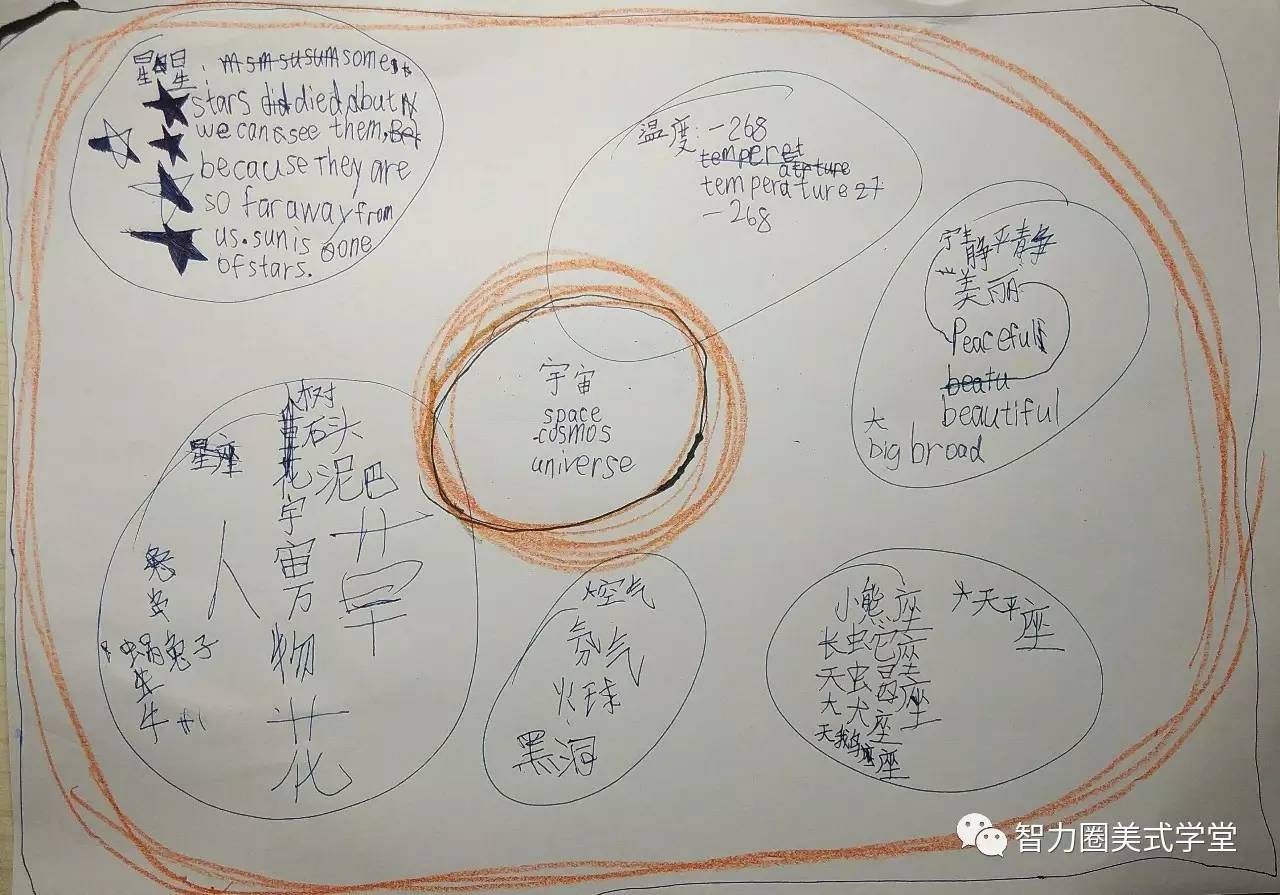 星星:
some
stars died but
we can see them,
because they are
so far away from
us. sun is one
of stars.
温度: -268
temperature 27
-268
宁静平静
美丽
Peaceful
beatu
beautiful
大
big broad
宇宙
space
cosmos
universe
树
石头
泥巴
星座
人
宇宙万物
花
草
兔子
蜗牛
空气
氛气
火球
黑洞
小熊座
天平座
长虫它座
大犬座
天鹅座
智力圈美式学堂